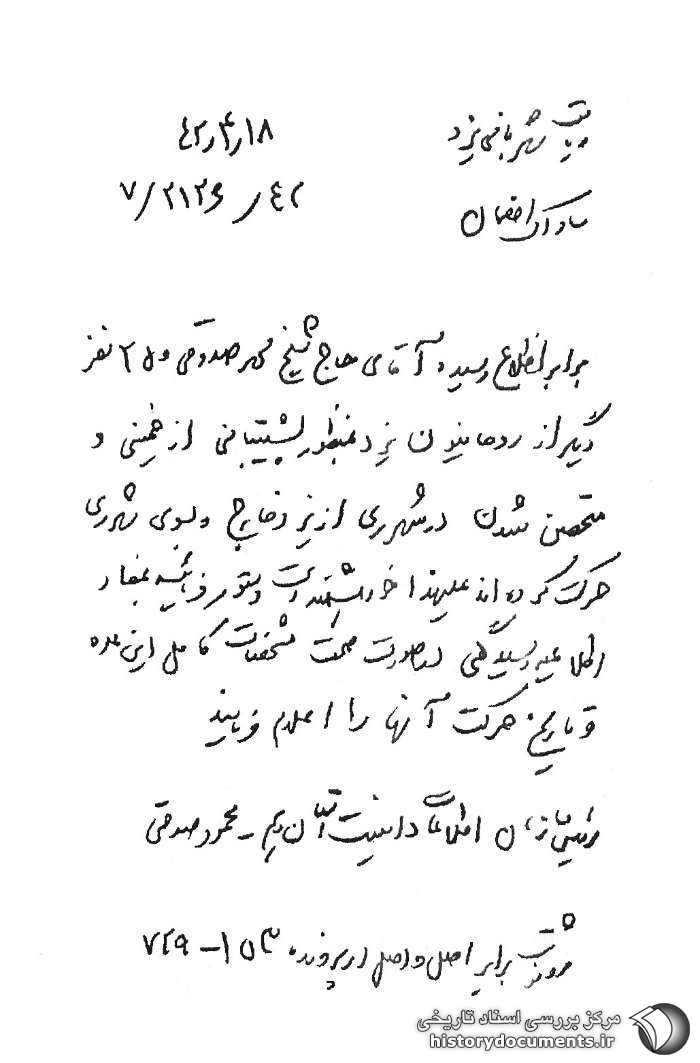 ریاست شهربانی یزد ۴۲ر۴ر۱۸
ساواک اصفهان ۴۲ر ۷/۲۱۲۶
برابر اطلاع رسیده آقای حاج شیخ محمد صدوقی و ۲۵ نفر
دیگر از روحانیون یزد بمنظور پشتیبانی از خمینی و
متحصن شدن در شهرری از یزد خارج و بسوی شهرری
حرکت کرده‌اند علیهذا خواهشمند است دستور فرمائید بمفاد
اطلاعیه رسیدگی در صورت صحت مشخصات کامل این عده
و تاریخ حرکت آنها را اعلام فرمایند
رئیس سازمان اطلاعات و امنیت استان دهم - محمود صدقی
رونوشت برابر اصل و اصل در پرونده ۱۵۳-۷۲۹
مرکز بررسی اسناد تاریخی
historydocuments.ir